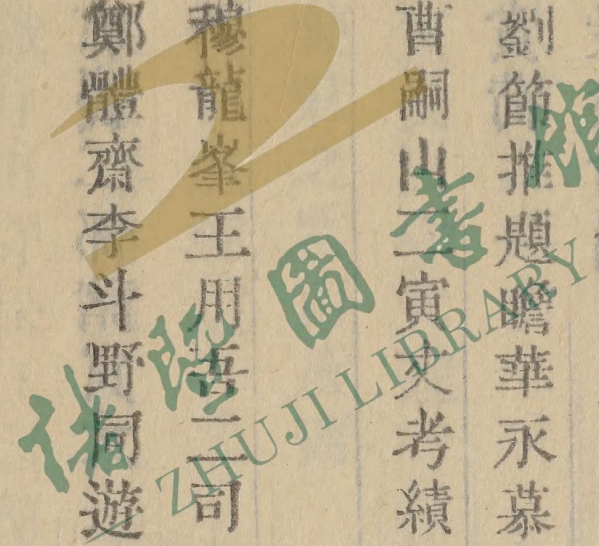 劉節推題瞻華永慕
曹嗣山二寅丈考績
穆龍峯王用吾二司
鄭體齋李斗野同遊
諸暨圖書館
ZHUJI LIBRARY